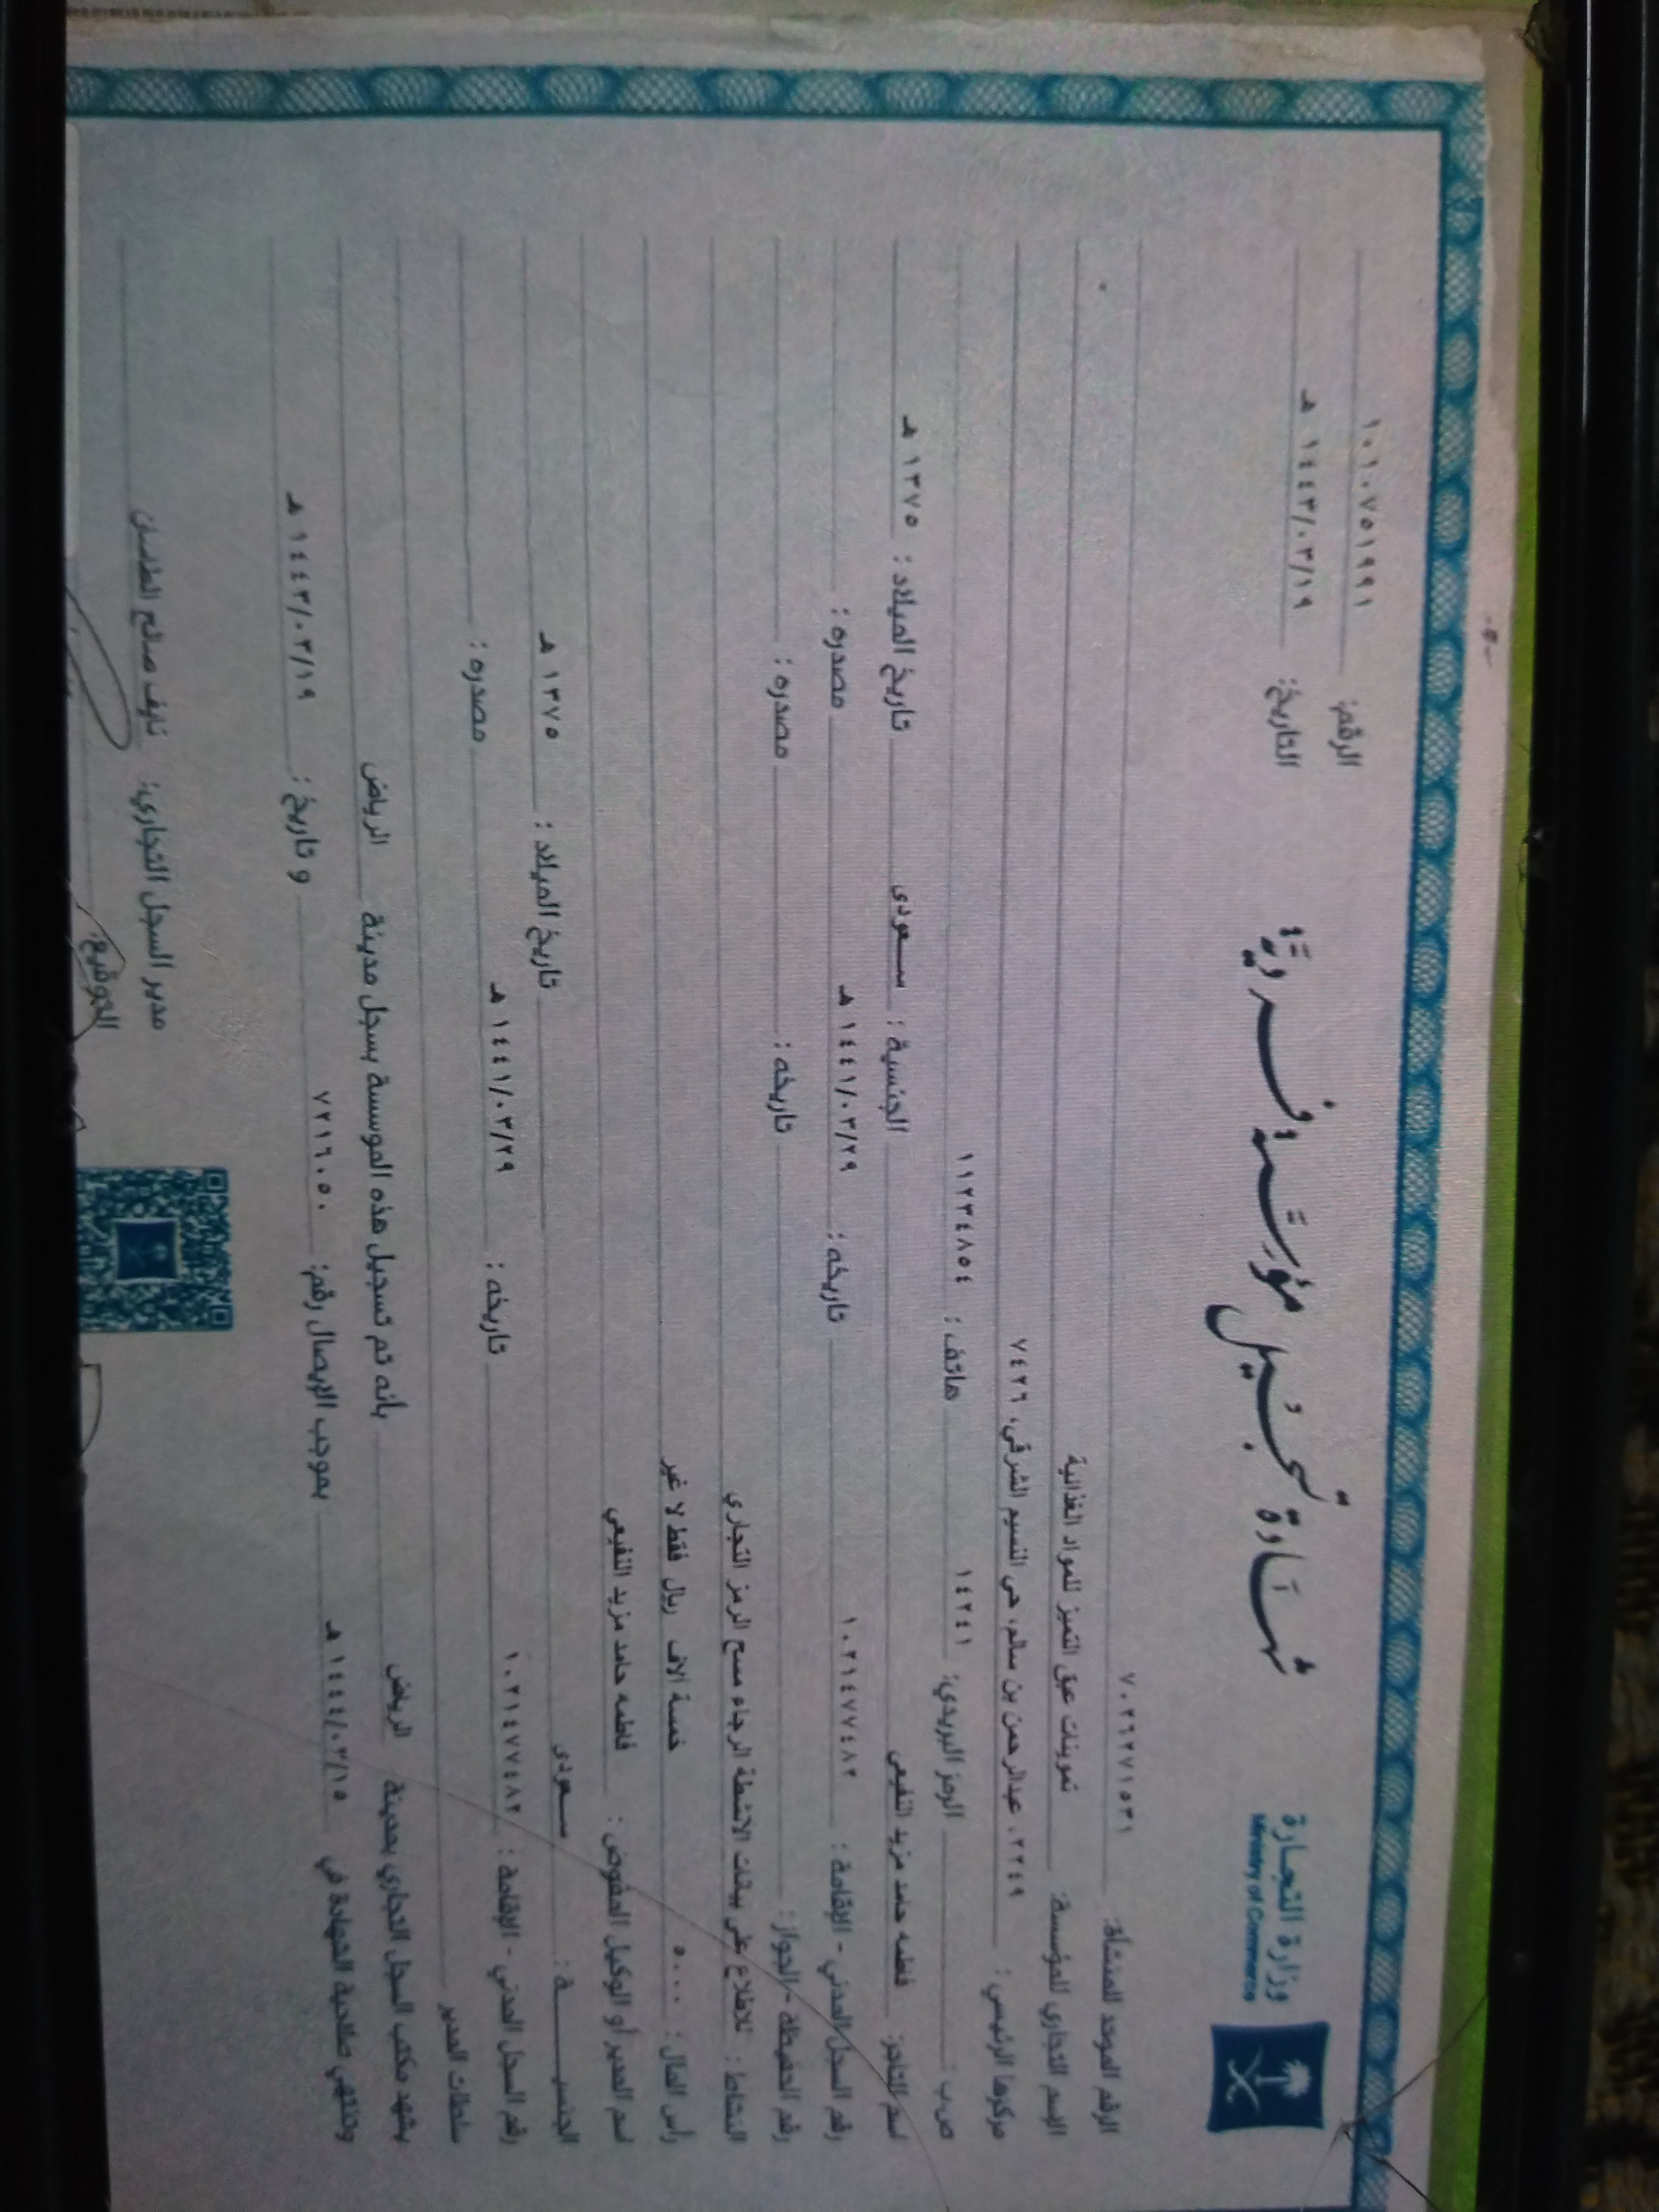 وزارة التجارة
Ministry of Commerce
شهادة تسجيل مؤسسة فردية
الرقم: ١٠١٠٧٥١٩٩١
التاريخ: ١٤٤٣/٠٣/١٩ هـ
الرقم الموحد للمنشأة: ٧٠٢٦٢٧١٥٣١
الإسم التجاري للمؤسسة: تموينات عبق التميز للمواد الغذائية
مركزها الرئيسي: ٢٢٤٩، عبدالرحمن بن سالم، حي النسيم الشرقي، ٧٤٢٦
ص ب: الرمز البريدي: ١٤٢٤١ هاتف: ١١٢٣٤٨٥٤
اسم التاجر: فاطمه حامد مزيد النفيعي الجنسية: سعودى تاريخ الميلاد: ١٣٧٥ هـ
رقم السجل المدني - الإقامة: ١٠٢١٤٧٧٤٨٢ تاريخه: ١٤٤١/٠٢/٢٩ هـ مصدره:
رقم الحفيظة - الجواز: تاريخه: مصدره:
النشاط: للاطلاع على بيانات الانشطة الرجاء مسح الرمز التجاري
رأس المال: ٥٠٠٠ خمسة آلاف ريال فقط لا غير
اسم المدير أو الوكيل المفوض: فاطمه حامد مزيد النفيعي
الجنسيـــــة: سعودى تاريخ الميلاد: ١٣٧٥ هـ
رقم السجل المدني - الإقامة: ١٠٢١٤٧٧٤٨٢ تاريخه: ١٤٤١/٠٢/٢٩ هـ مصدره:
سلطات المدير
يشهد مكتب السجل التجاري بمدينة الرياض بأنه تم تسجيل هذه الموسسة بسجل مدينة الرياض
وتنتهي صلاحية الشهادة في ١٤٤٤/٠٣/١٥ هـ بموجب الإيصال رقم: ٧٢١٦٠٥٠ و تاريخ: ١٤٤٣/٠٣/١٩ هـ
مدير السجل التجاري: نايف صالح
التوقيع: